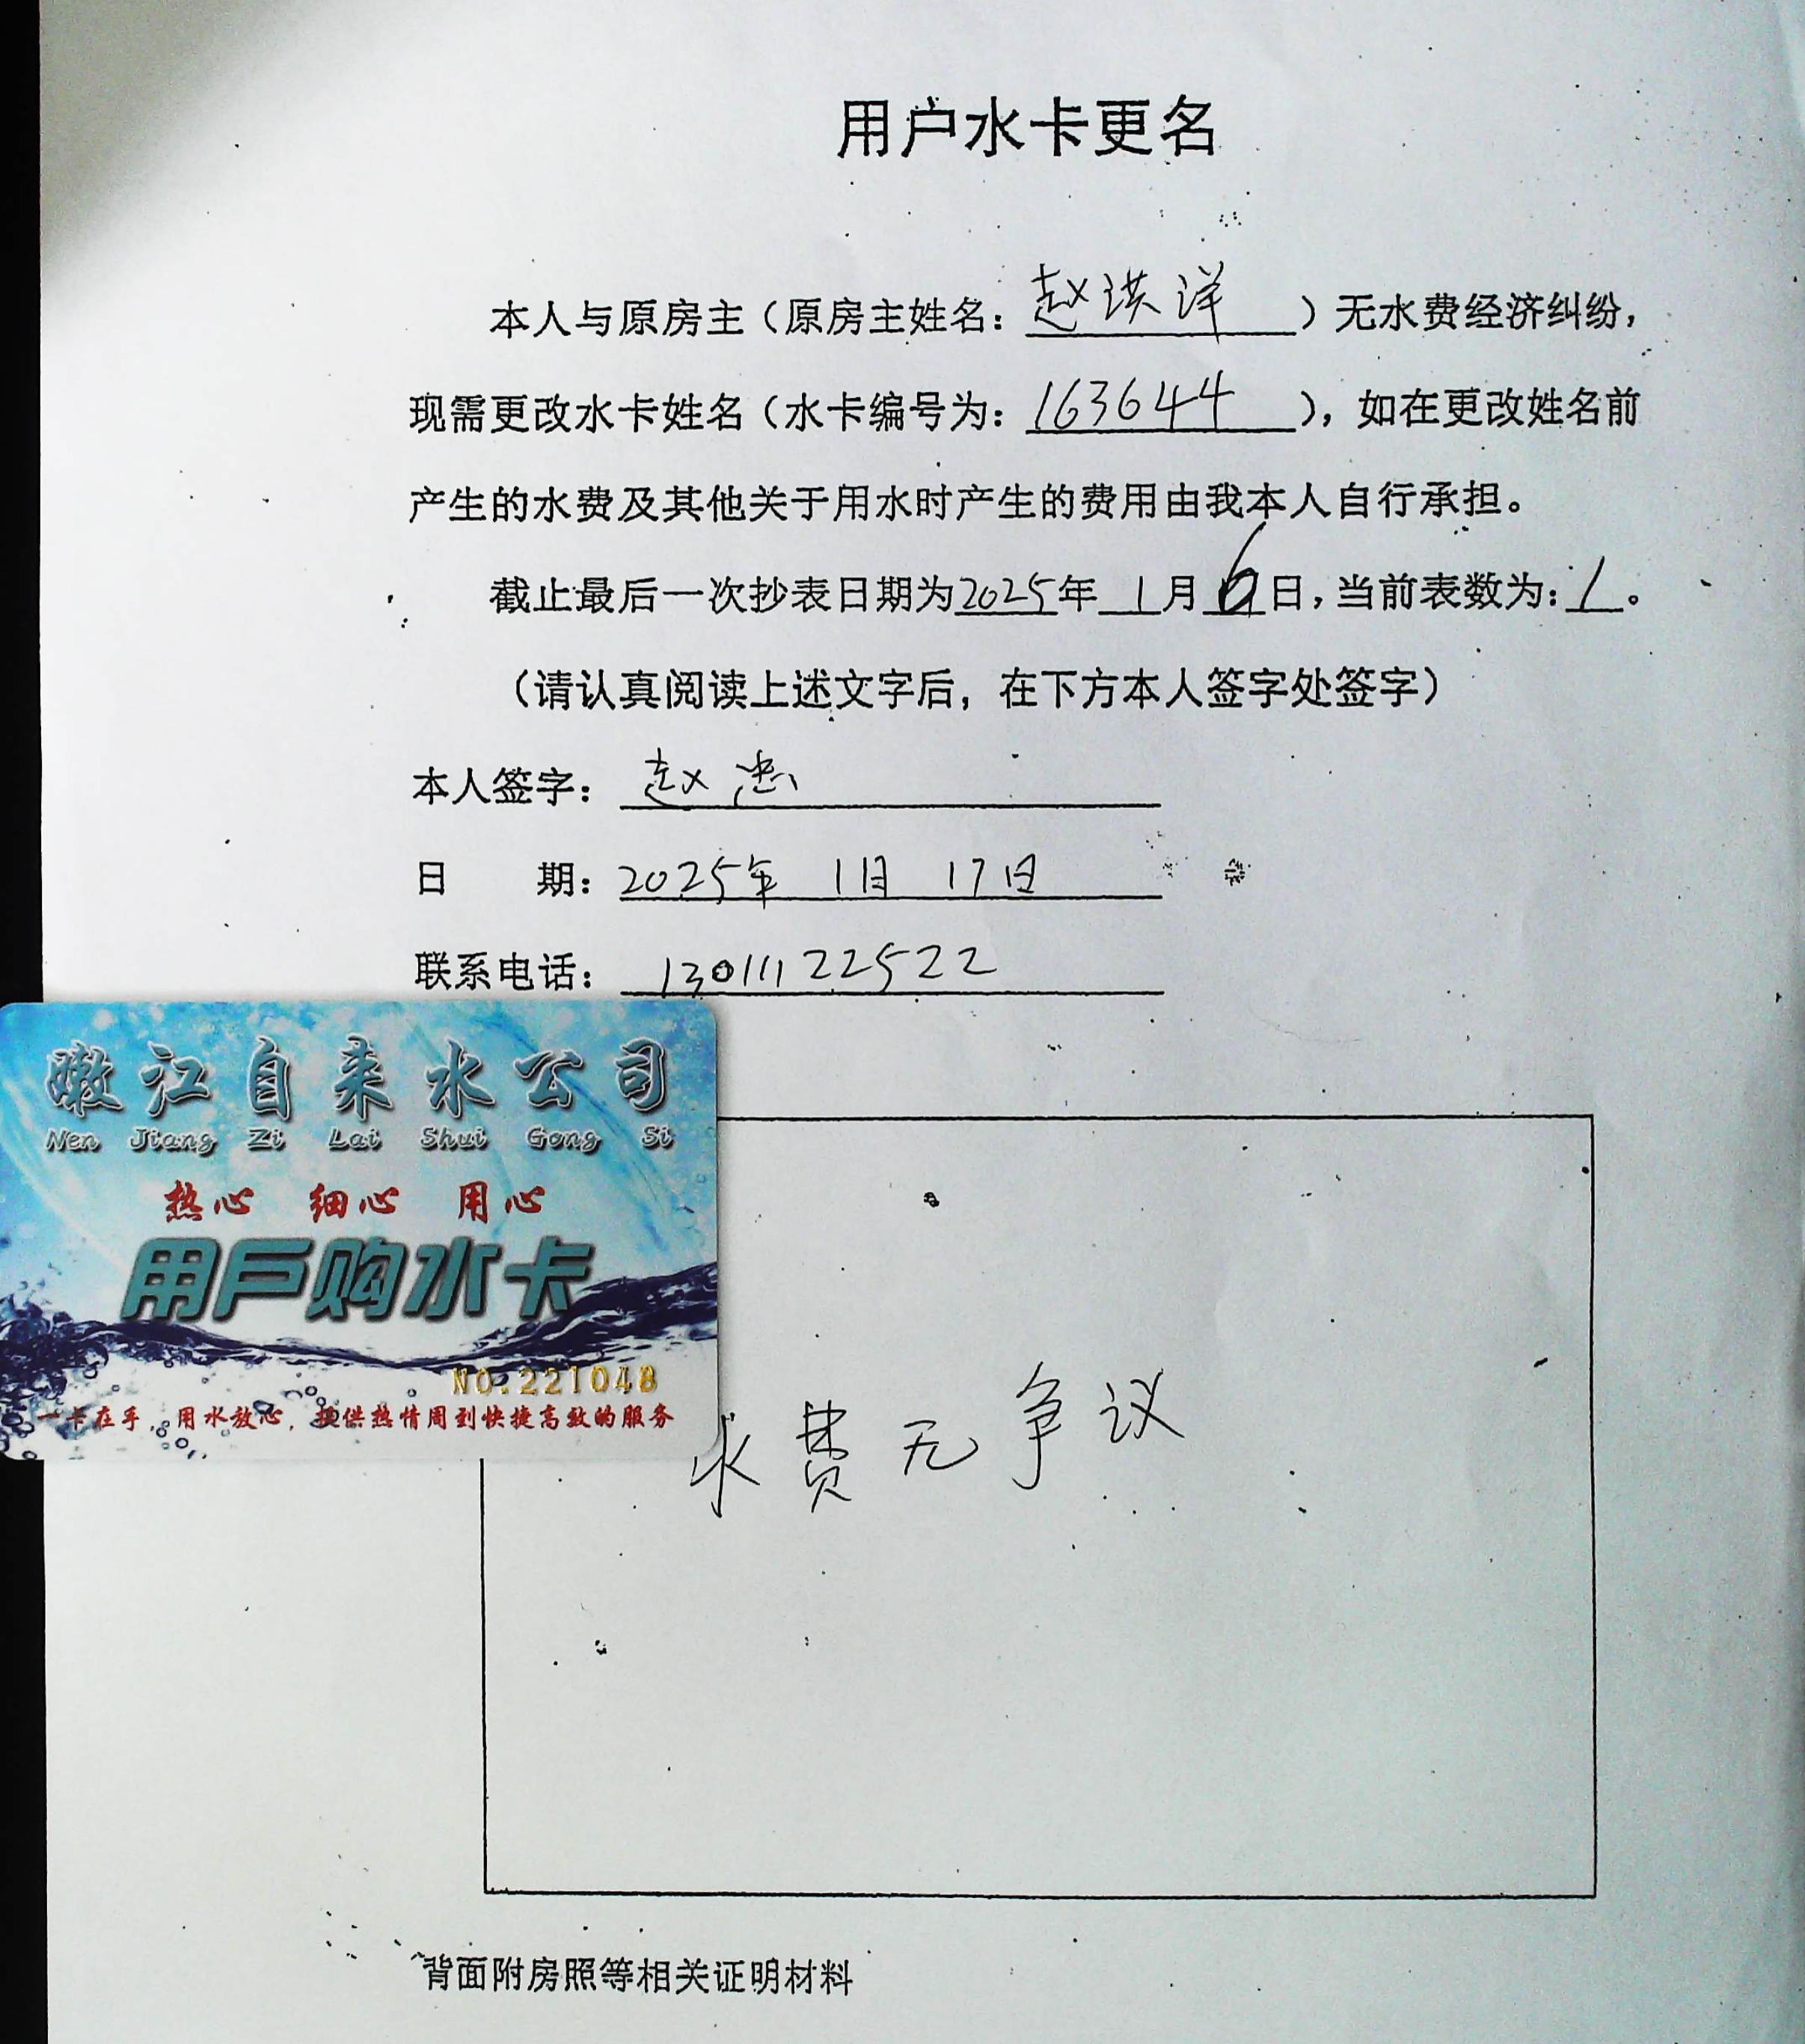 用户水卡更名
本人与原房主（原房主姓名：赵洪洋）无水费经济纠纷，
现需更改水卡姓名（水卡编号为：163644），如在更改姓名前
产生的水费及其他关于用水时产生的费用由我本人自行承担。
截止最后一次抄表日期为2025年1月6日，当前表数为：1。
（请认真阅读上述文字后，在下方本人签字处签字）
本人签字：赵忠
日 期：2025年 1月 17日
联系电话：13011122522
嫩江自来水公司
Nen Jiang Zi Lai Shui Gong Si
热心 细心 用心
用户购水卡
NO.221048
一卡在手，用水放心，提供热情周到快捷高效的服务
水费无争议
背面附房照等相关证明材料